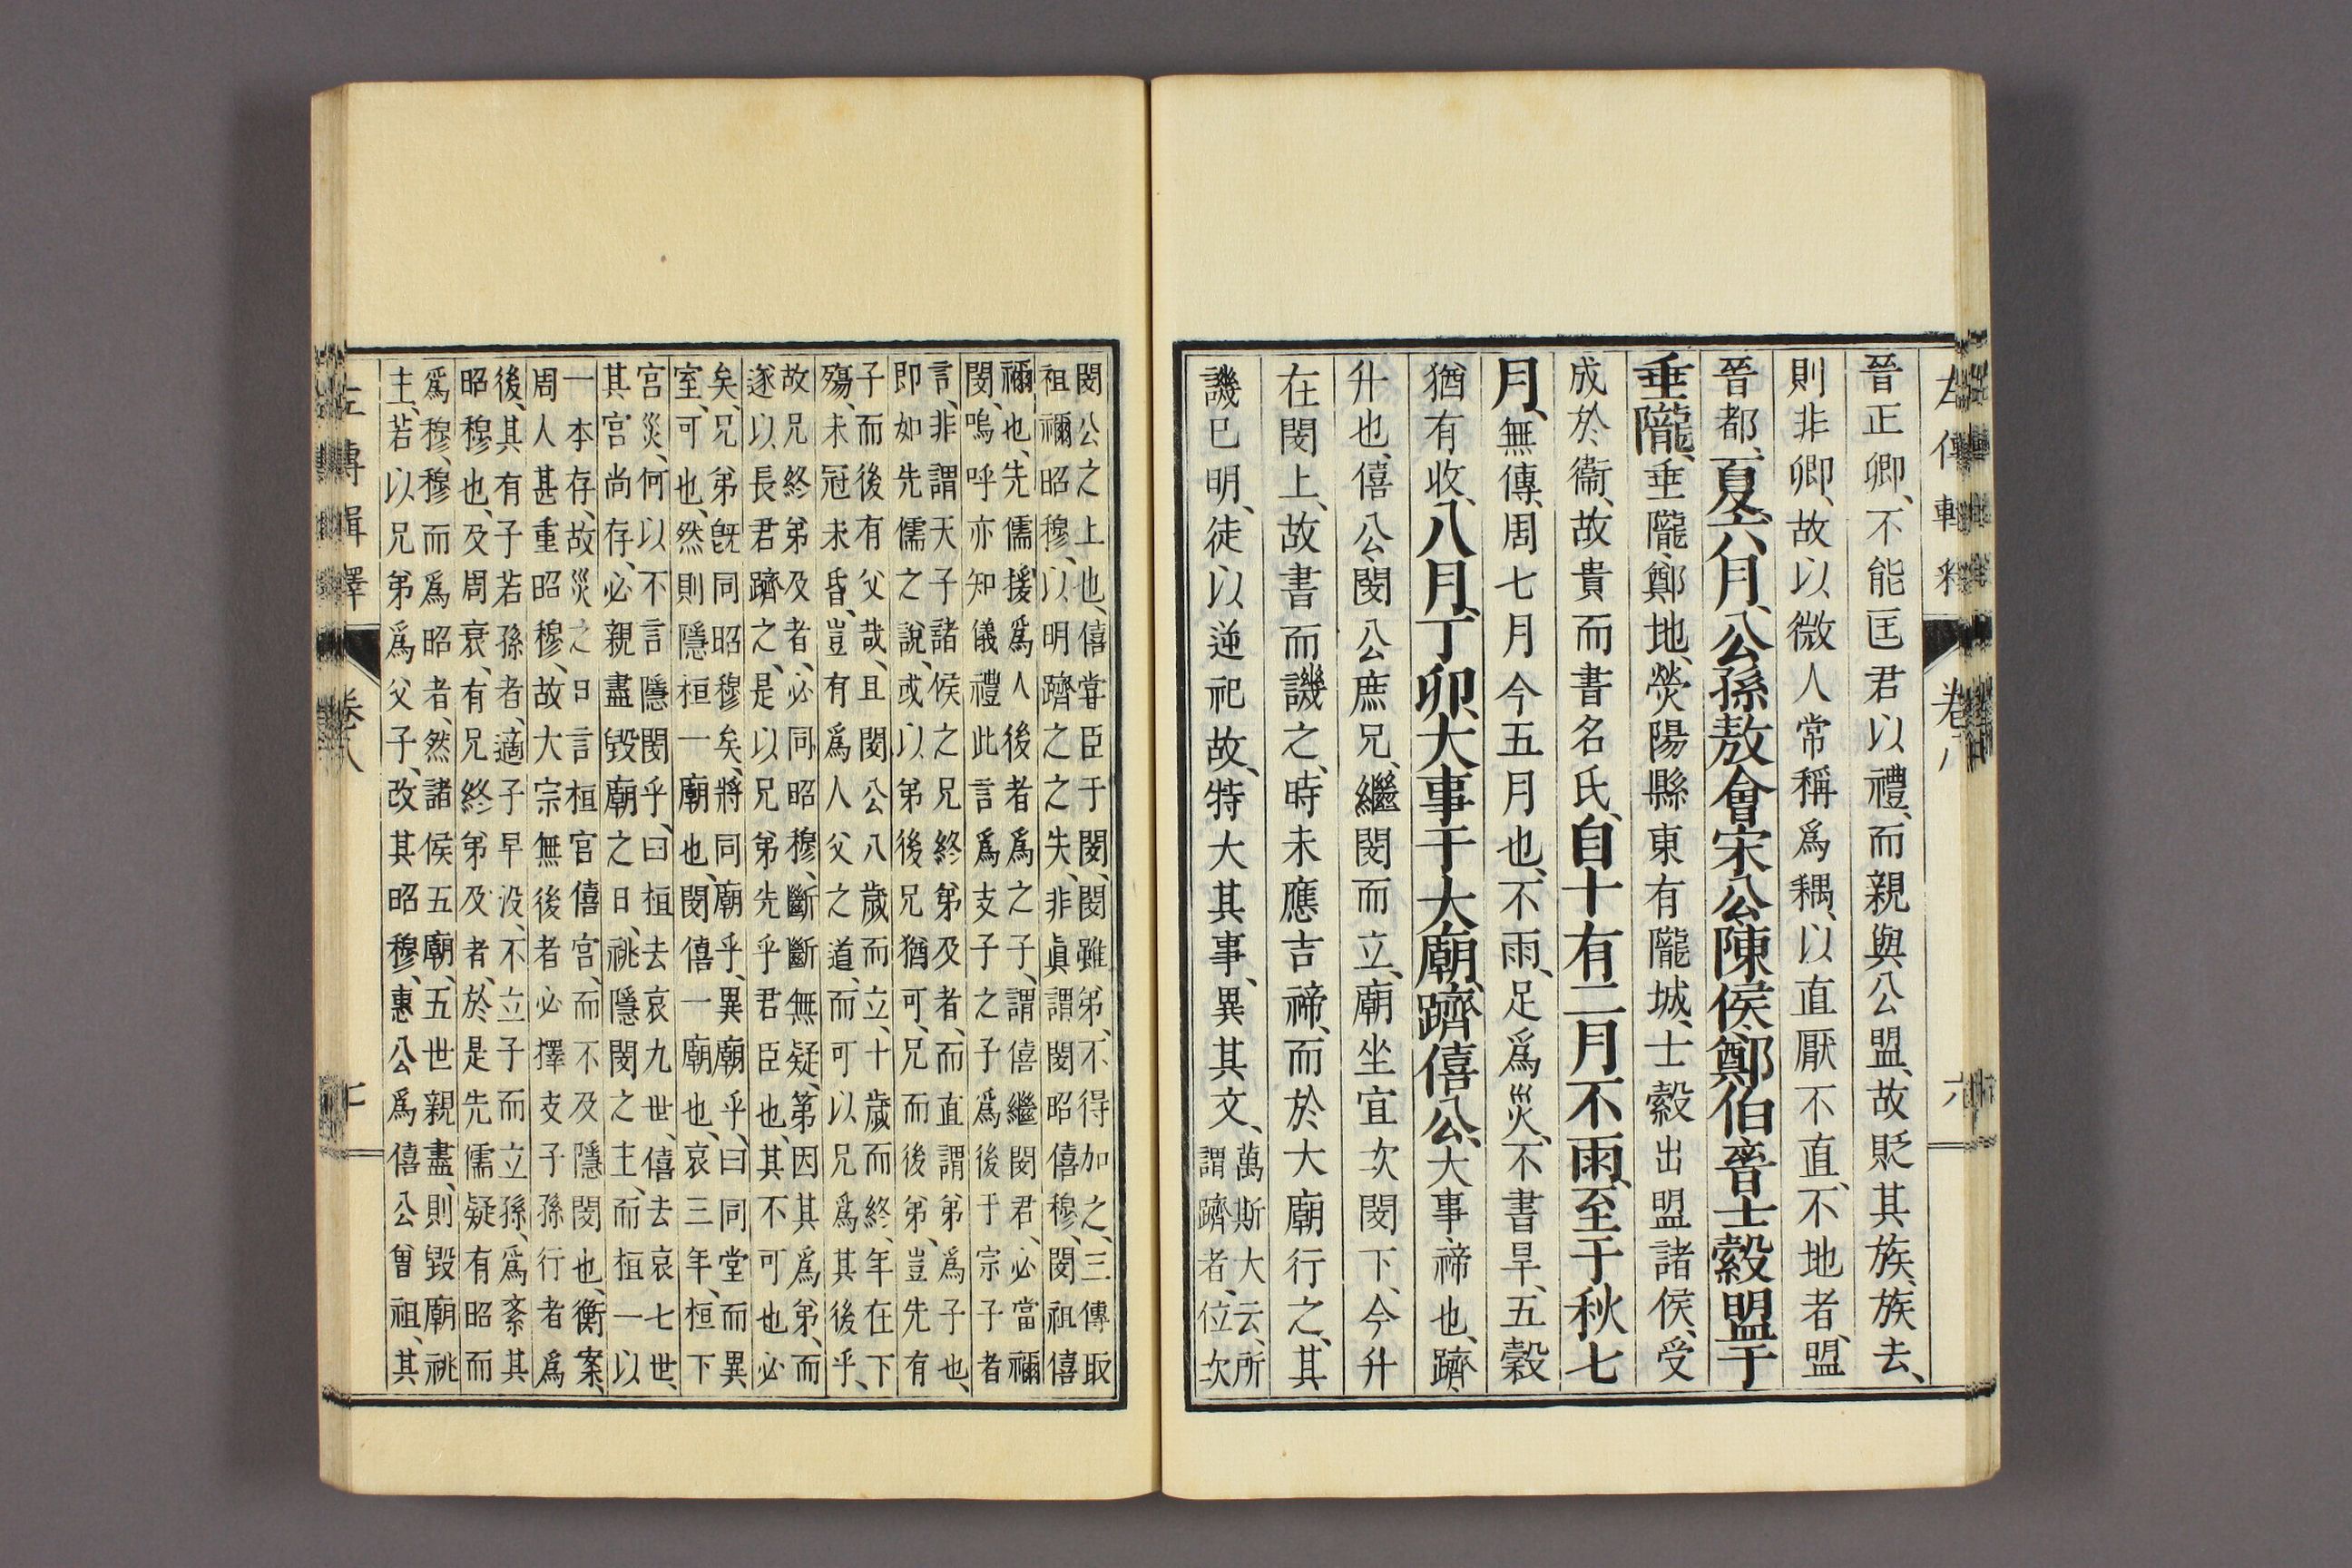 晉正卿、不能匡君以禮、而親與公盟、故貶其族、族去、
則非卿、故以微人常稱爲耦、以直厭不直、不地者、盟
晉都、夏六月、公孫敖會宋公陳侯鄭伯晉士縠盟于
垂隴、垂隴、鄭地、熒陽縣東有隴城、士縠出盟諸侯、受
成於衞、故貴而書名氏、自十有二月不雨、至于秋七
月、無傳、周七月今五月也、不雨、足爲災、不書旱、五穀
猶有收、八月、丁卯、大事于大廟、躋僖公、大事、禘也、躋、
升也、僖公、閔公庶兄、繼閔而立、廟坐宜次閔下、今升
在閔上、故書而譏之、時未應吉禘、而於大廟行之、其
譏已明、徒以逆祀故、特大其事、異其文、萬斯大云、所
謂躋者、位次
閔公之上也、僖甞臣于閔、閔雖弟、不得加之、三傳取
祖禰昭穆、以明躋之之失、非眞謂閔昭僖穆、閔祖僖
禰也、先儒援爲人後者爲之子、謂僖繼閔君、必當禰
閔、嗚呼亦知儀禮此言爲支子之子爲後于宗子者
言、非謂天子諸侯之兄終弟及者、而直謂弟爲子也、
即如先儒之說、或以弟後兄猶可、兄而後弟、豈先有
子而後有父哉、且閔公八歲而立、十歲而終、年在下
殤、未冠未昏、豈有爲人父之道、而可以兄爲其後乎、
故兄終弟及者、必同昭穆、斷斷無疑、第因其爲弟、而
遂以長君躋之、是以兄弟先乎君臣也、其不可也必
矣、兄弟旣同昭穆矣、將同廟乎、異廟乎、曰同堂而異
室、可也、然則隱桓一廟也、閔僖一廟也、哀三年、桓下
宮災、何以不言隱閔乎、曰桓去哀九世、僖去哀七世、
其宮尚存、必親盡毀廟之日、祧隱閔之主、而桓一以
一本存、故災之日言桓宮僖宮、而不及隱閔也、衡案、
周人甚重昭穆、故大宗無後者必擇支子孫行者爲
後、其有子若孫者、適子早沒、不立子而立孫、爲紊其
昭穆也、及周衰、有兄終弟及者、於是先儒疑有昭而
爲穆、穆而爲昭者、然諸侯五廟、五世親盡、則毀廟祧
主、若以兄弟爲父子、改其昭穆、惠公爲僖公曾祖、其